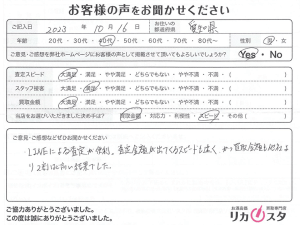 お客様の声をお聞かせください
ご記入日 2023年 10月 16日 お住いの都道府県 愛知県
年齢 20代・30代・40代・50代・60代・70代・80代〜 性別 男・女
ご意見・ご感想を弊社ホームページにお客様の声として掲載させて頂いてもよろしいでしょうか? Yes・No
査定スピード 大満足・満足・やや満足・どちらでもない・やや不満・不満・( )
スタッフ接客 大満足・満足・やや満足・どちらでもない・やや不満・不満・( )
買取金額 大満足・満足・やや満足・どちらでもない・やや不満・不満・( )
当店をお選びいただきました決め手は? 買取金額・対応力・利便性・スピード・その他( )
ご意見・ご感想などぜひお聞かせください。
LINEによる査定が便利。査定金額が出てくるスピードも速く、かつ買取金額も他社よ
り2割ほど高い結果でした。
ご協力ありがとうございました。
この度は誠にありがとうございました。
お酒高価買取専門店
リカスタ